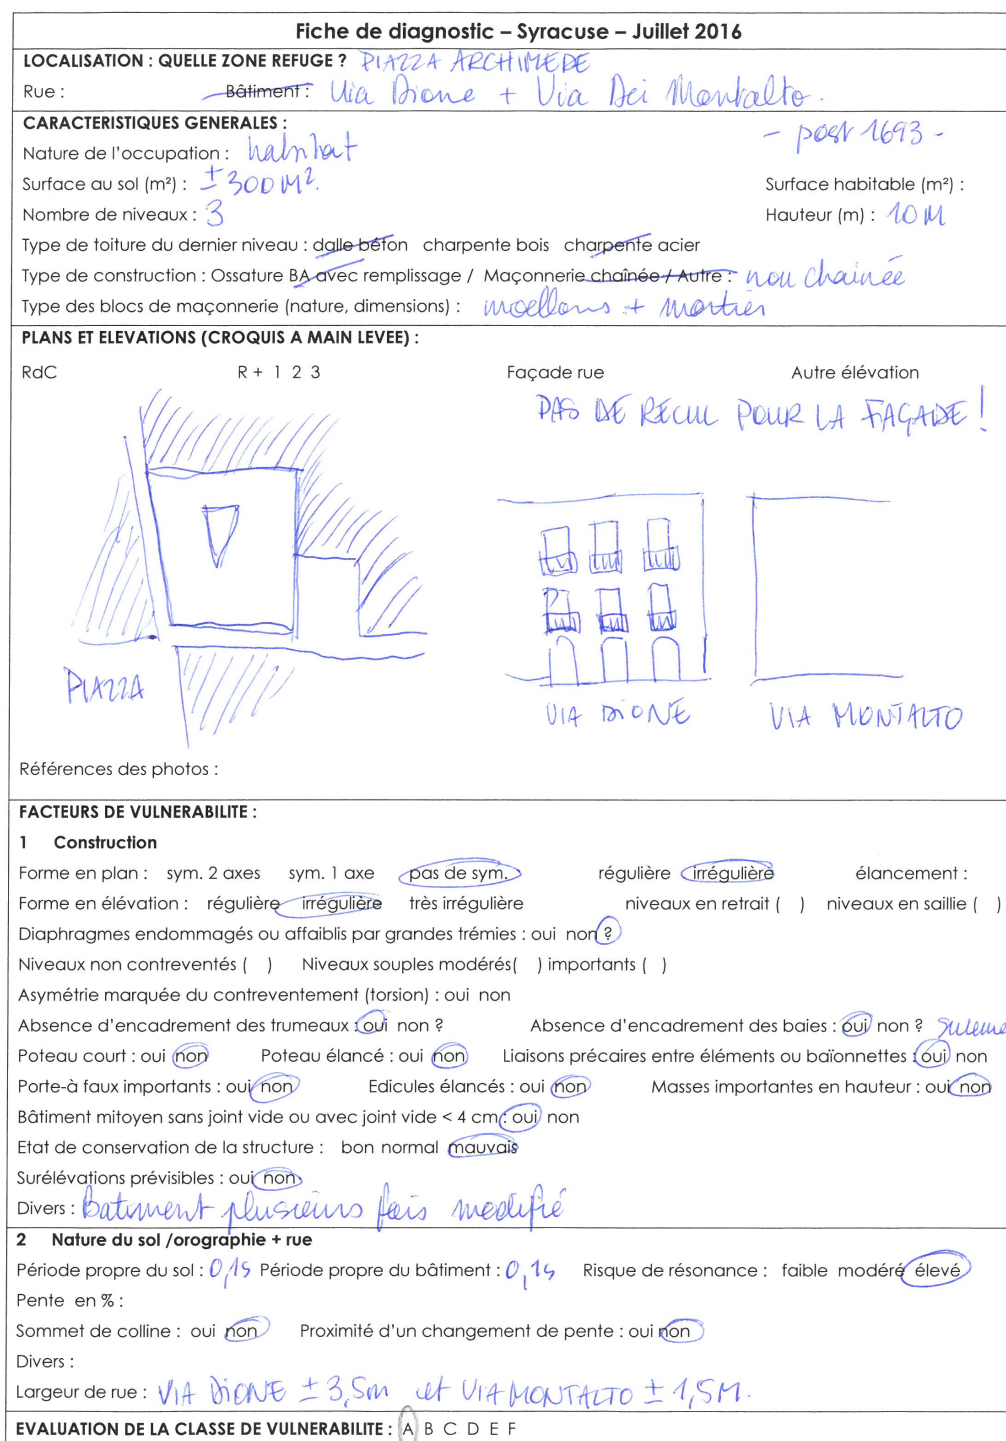 Fiche de diagnostic – Syracuse – Juillet 2016
LOCALISATION : QUELLE ZONE REFUGE ? PIAZZA ARCHIMEDE
Rue : Bâtiment : Via Dione + Via Dei Montalto.
CARACTERISTIQUES GENERALES :
- post 1693 -
Nature de l'occupation : habitat
Surface au sol (m²) : ± 300 M². Surface habitable (m²) :
Nombre de niveaux : 3 Hauteur (m) : 10 M
Type de toiture du dernier niveau : dalle béton charpente bois charpente acier
Type de construction : Ossature BA avec remplissage / Maçonnerie chaînée / Autre : non chainée
Type des blocs de maçonnerie (nature, dimensions) : moellons + mortier
PLANS ET ELEVATIONS (CROQUIS A MAIN LEVEE) :
RdC R + 1 2 3 Façade rue Autre élévation
PAS DE RECUL POUR LA FAÇADE !
PIAZZA
VIA DIONE VIA MONTALTO
Références des photos :
FACTEURS DE VULNERABILITE :
1 Construction
Forme en plan : sym. 2 axes sym. 1 axe pas de sym. régulière irrégulière élancement :
Forme en élévation : régulière irrégulière très irrégulière niveaux en retrait ( ) niveaux en saillie ( )
Diaphragmes endommagés ou affaiblis par grandes trémies : oui non ?
Niveaux non contreventés ( ) Niveaux souples modérés( ) importants ( )
Asymétrie marquée du contreventement (torsion) : oui non
Absence d'encadrement des trumeaux : oui non ? Absence d'encadrement des baies : oui non ?
Poteau court : oui non Poteau élancé : oui non Liaisons précaires entre éléments ou baïonnettes : oui non
Porte-à faux importants : oui non Edicules élancés : oui non Masses importantes en hauteur : oui non
Bâtiment mitoyen sans joint vide ou avec joint vide < 4 cm : oui non
Etat de conservation de la structure : bon normal mauvais
Surélévations prévisibles : oui non
Divers : Batiment plusieurs fois modifié
2 Nature du sol /orographie + rue
Période propre du sol : 0,1s Période propre du bâtiment : 0,1s Risque de résonance : faible modéré élevé
Pente en % :
Sommet de colline : oui non Proximité d'un changement de pente : oui non
Divers :
Largeur de rue : VIA DIONE ± 3,5m et VIA MONTALTO ± 1,5M.
EVALUATION DE LA CLASSE DE VULNERABILITE : A B C D E F